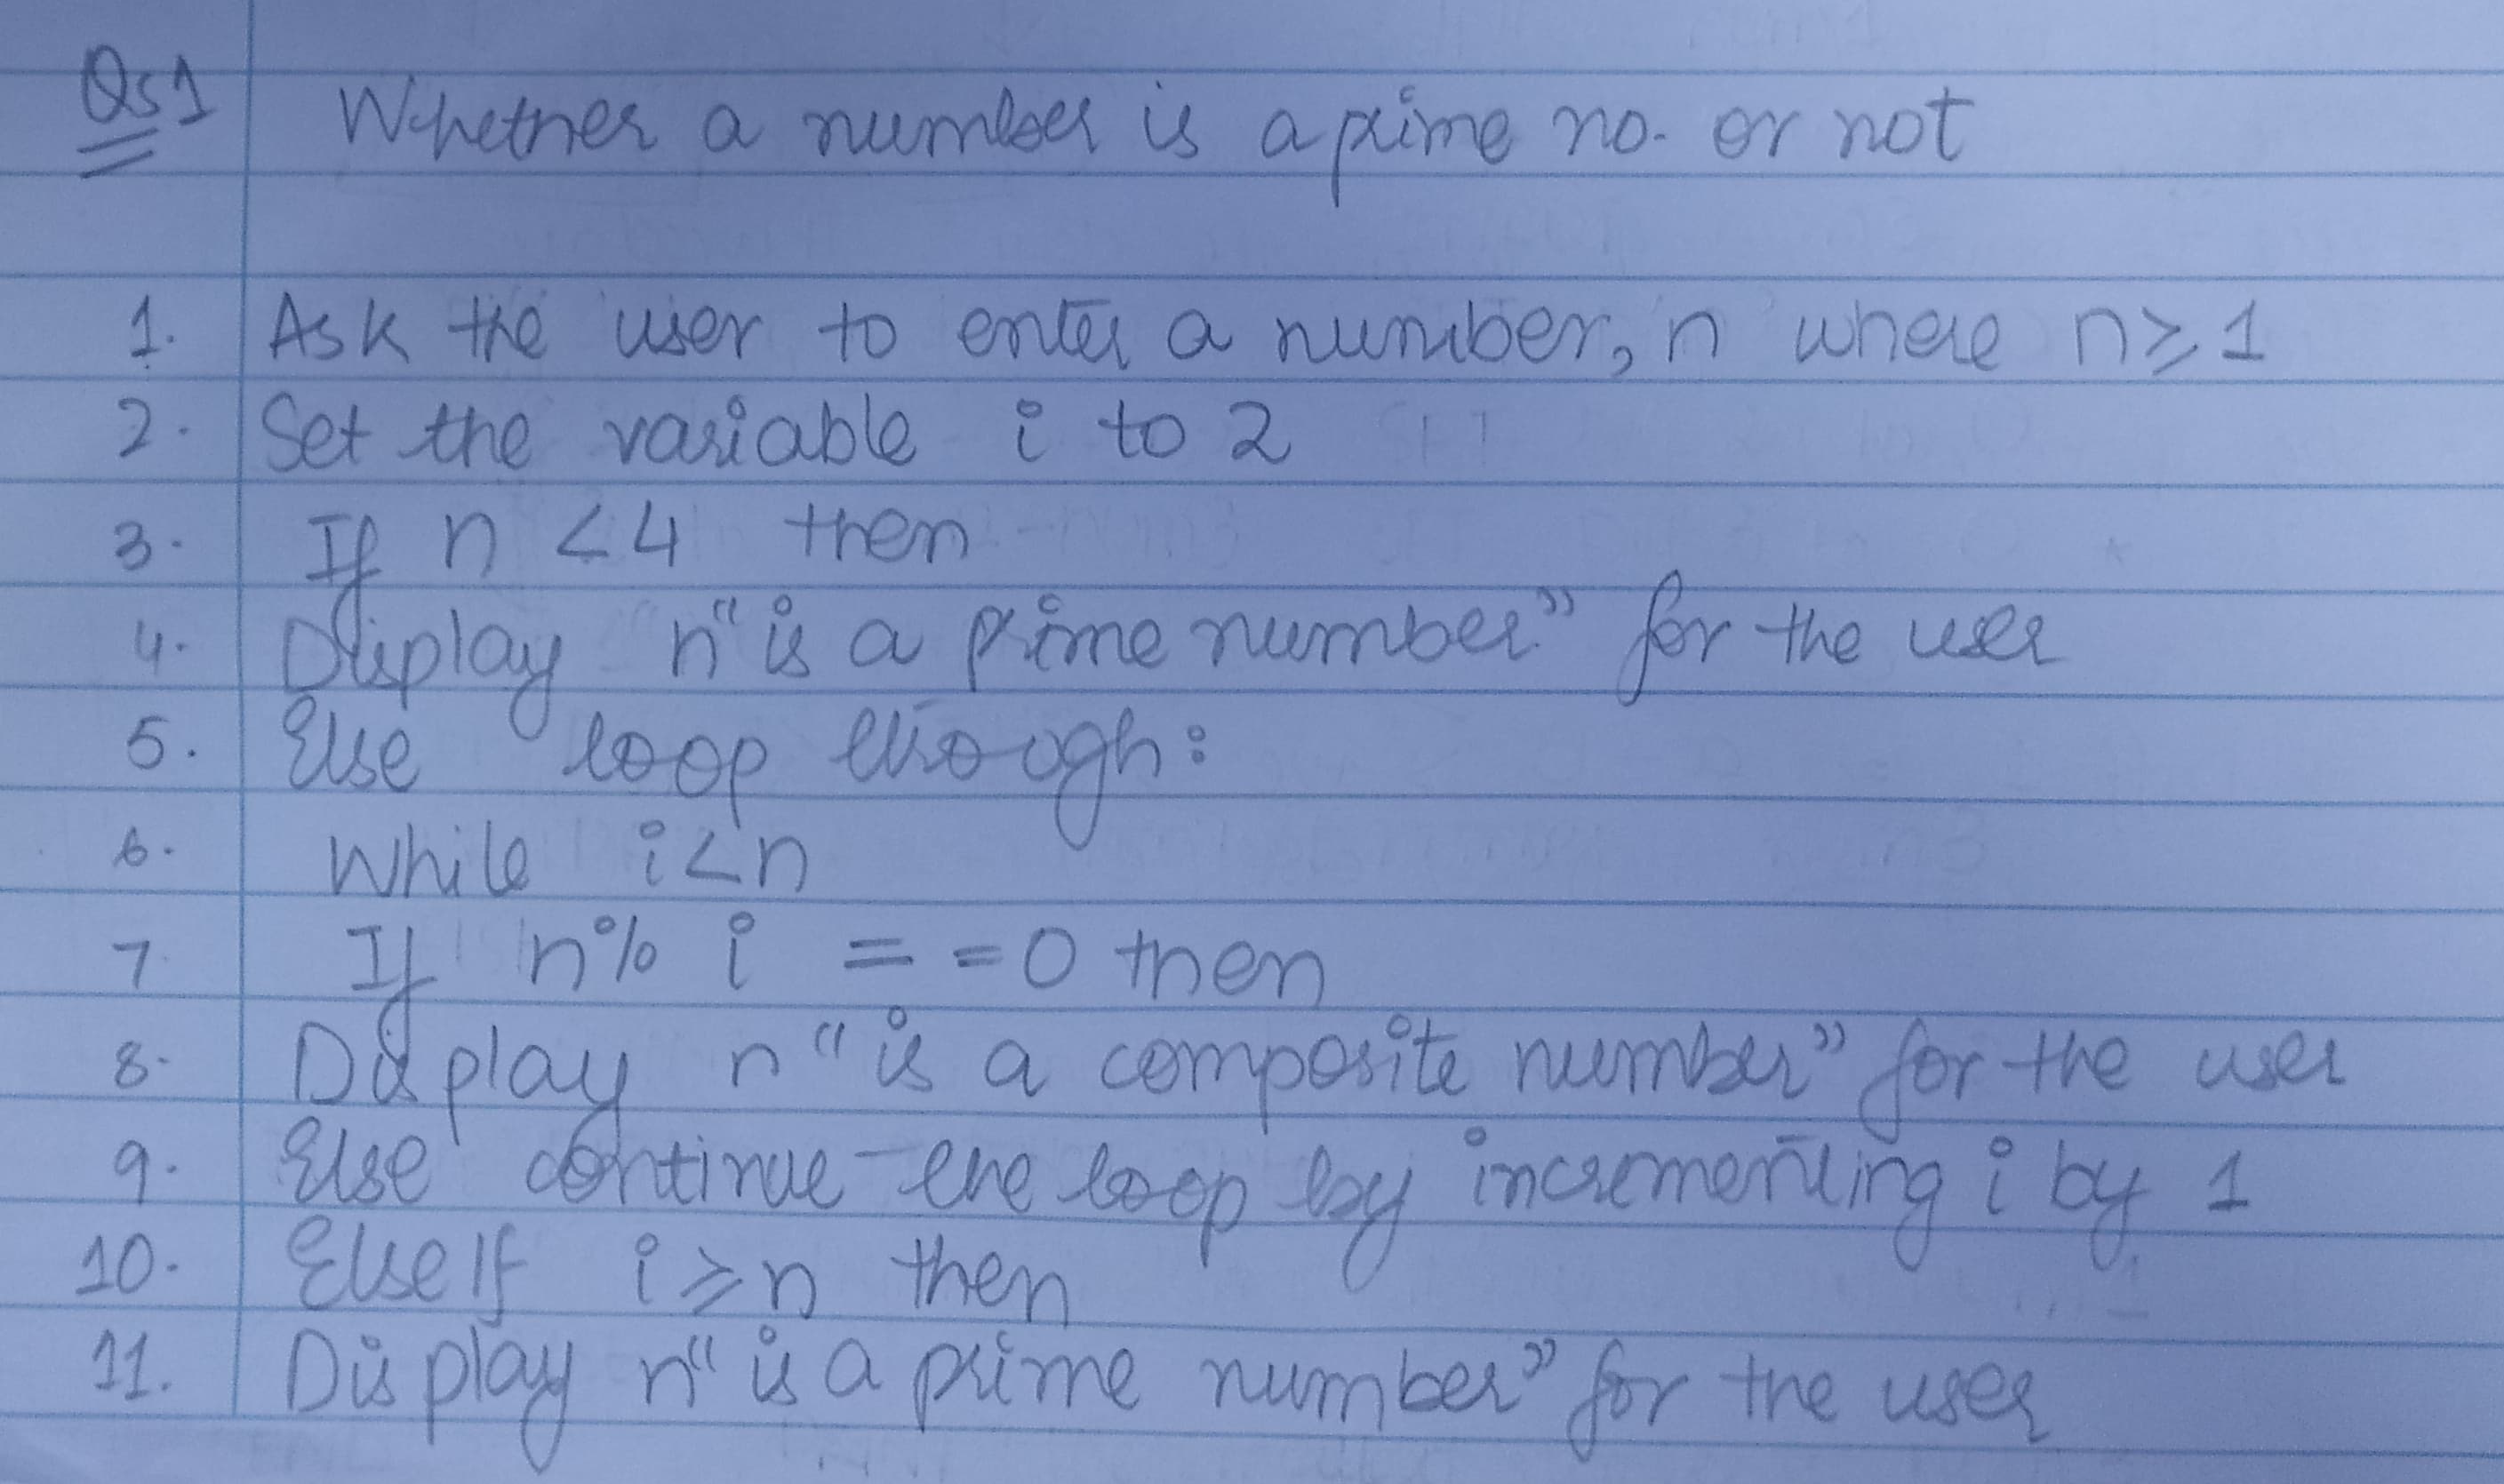 Qs1 Whether a number is a prime no. or not
1. Ask the user to enter a number, n where n ≥ 1
2. Set the variable i to 2
3. If n < 4 then
4. Display n "is a prime number" for the user
5. Else loop through:
6. While i < n
7. If n % i = = 0 then
8. Display n "is a composite number" for the user
9. Else continue the loop by incrementing i by 1
10. Else If i ≥ n then
11. Display n "is a prime number" for the user